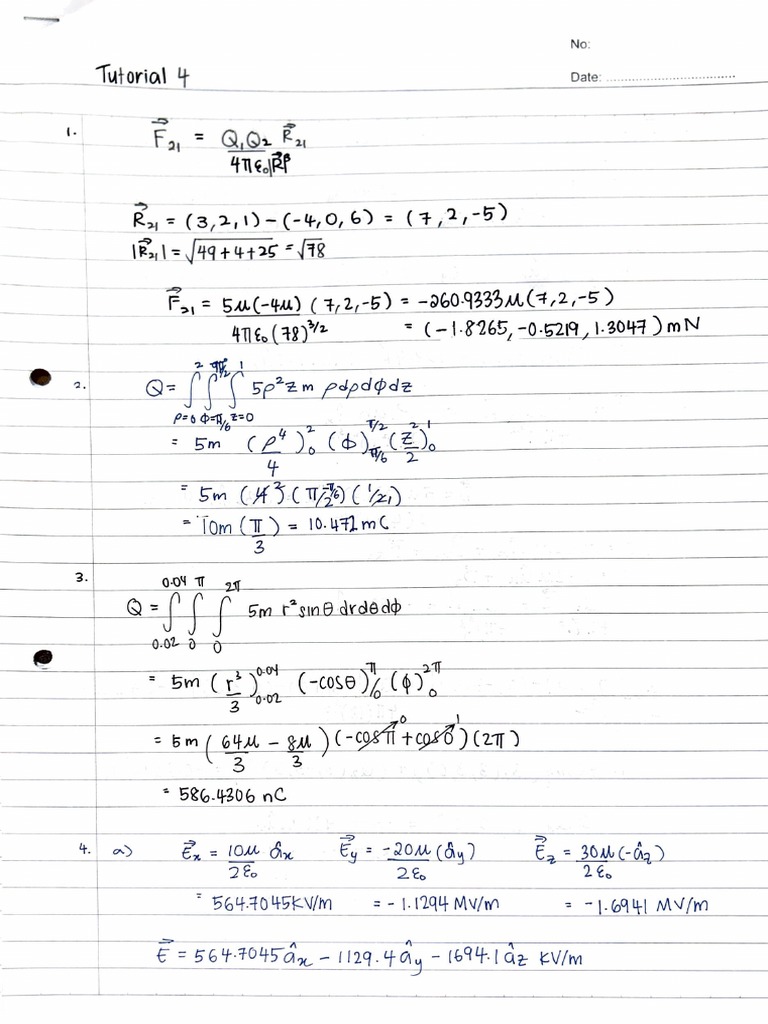 No:
Tutorial 4
Date: ..................................
1. F⃗₂₁ = Q₁Q₂ R⃗₂₁ / 4πε₀|R⃗|³
R⃗₂₁ = (3,2,1) − (−4,0,6) = (7,2,−5)
|R⃗₂₁| = √(49+4+25) = √78
F⃗₂₁ = 5μ(−4μ)(7,2,−5) / 4πε₀(78)^(3/2) = −260.9333μ(7,2,−5)
= (−1.8265, −0.5219, 1.3047) mN
2. Q = ∫_(ρ=0)^2 ∫_(φ=π/6)^(π/2) ∫_(z=0)^1 5ρ²z m ρdρdφdz
= 5m (ρ⁴/4)₀² (φ)_(π/6)^(π/2) (z²/2)₀¹
= 5m (4²)(π/2 − π/6)(1/2)
= 10m (π/3) = 10.472mC
3. Q = ∫_(0.02)^(0.04) ∫_0^π ∫_0^(2π) 5m r² sinθ drdθdφ
= 5m (r³/3)_(0.02)^(0.04) (−cosθ)₀^π (φ)₀^(2π)
= 5m (64μ/3 − 8μ/3) (−cosπ + cos0)(2π)
= 586.4306 nC
4. a) E⃗x = 10μ/2ε₀ âx E⃗y = −20μ/2ε₀ (ây) E⃗z = 30μ/2ε₀ (−âz)
= 564.7045KV/m = −1.1294 MV/m = −1.6941 MV/m
E⃗ = 564.7045âx − 1129.4ây − 1694.1âz KV/m